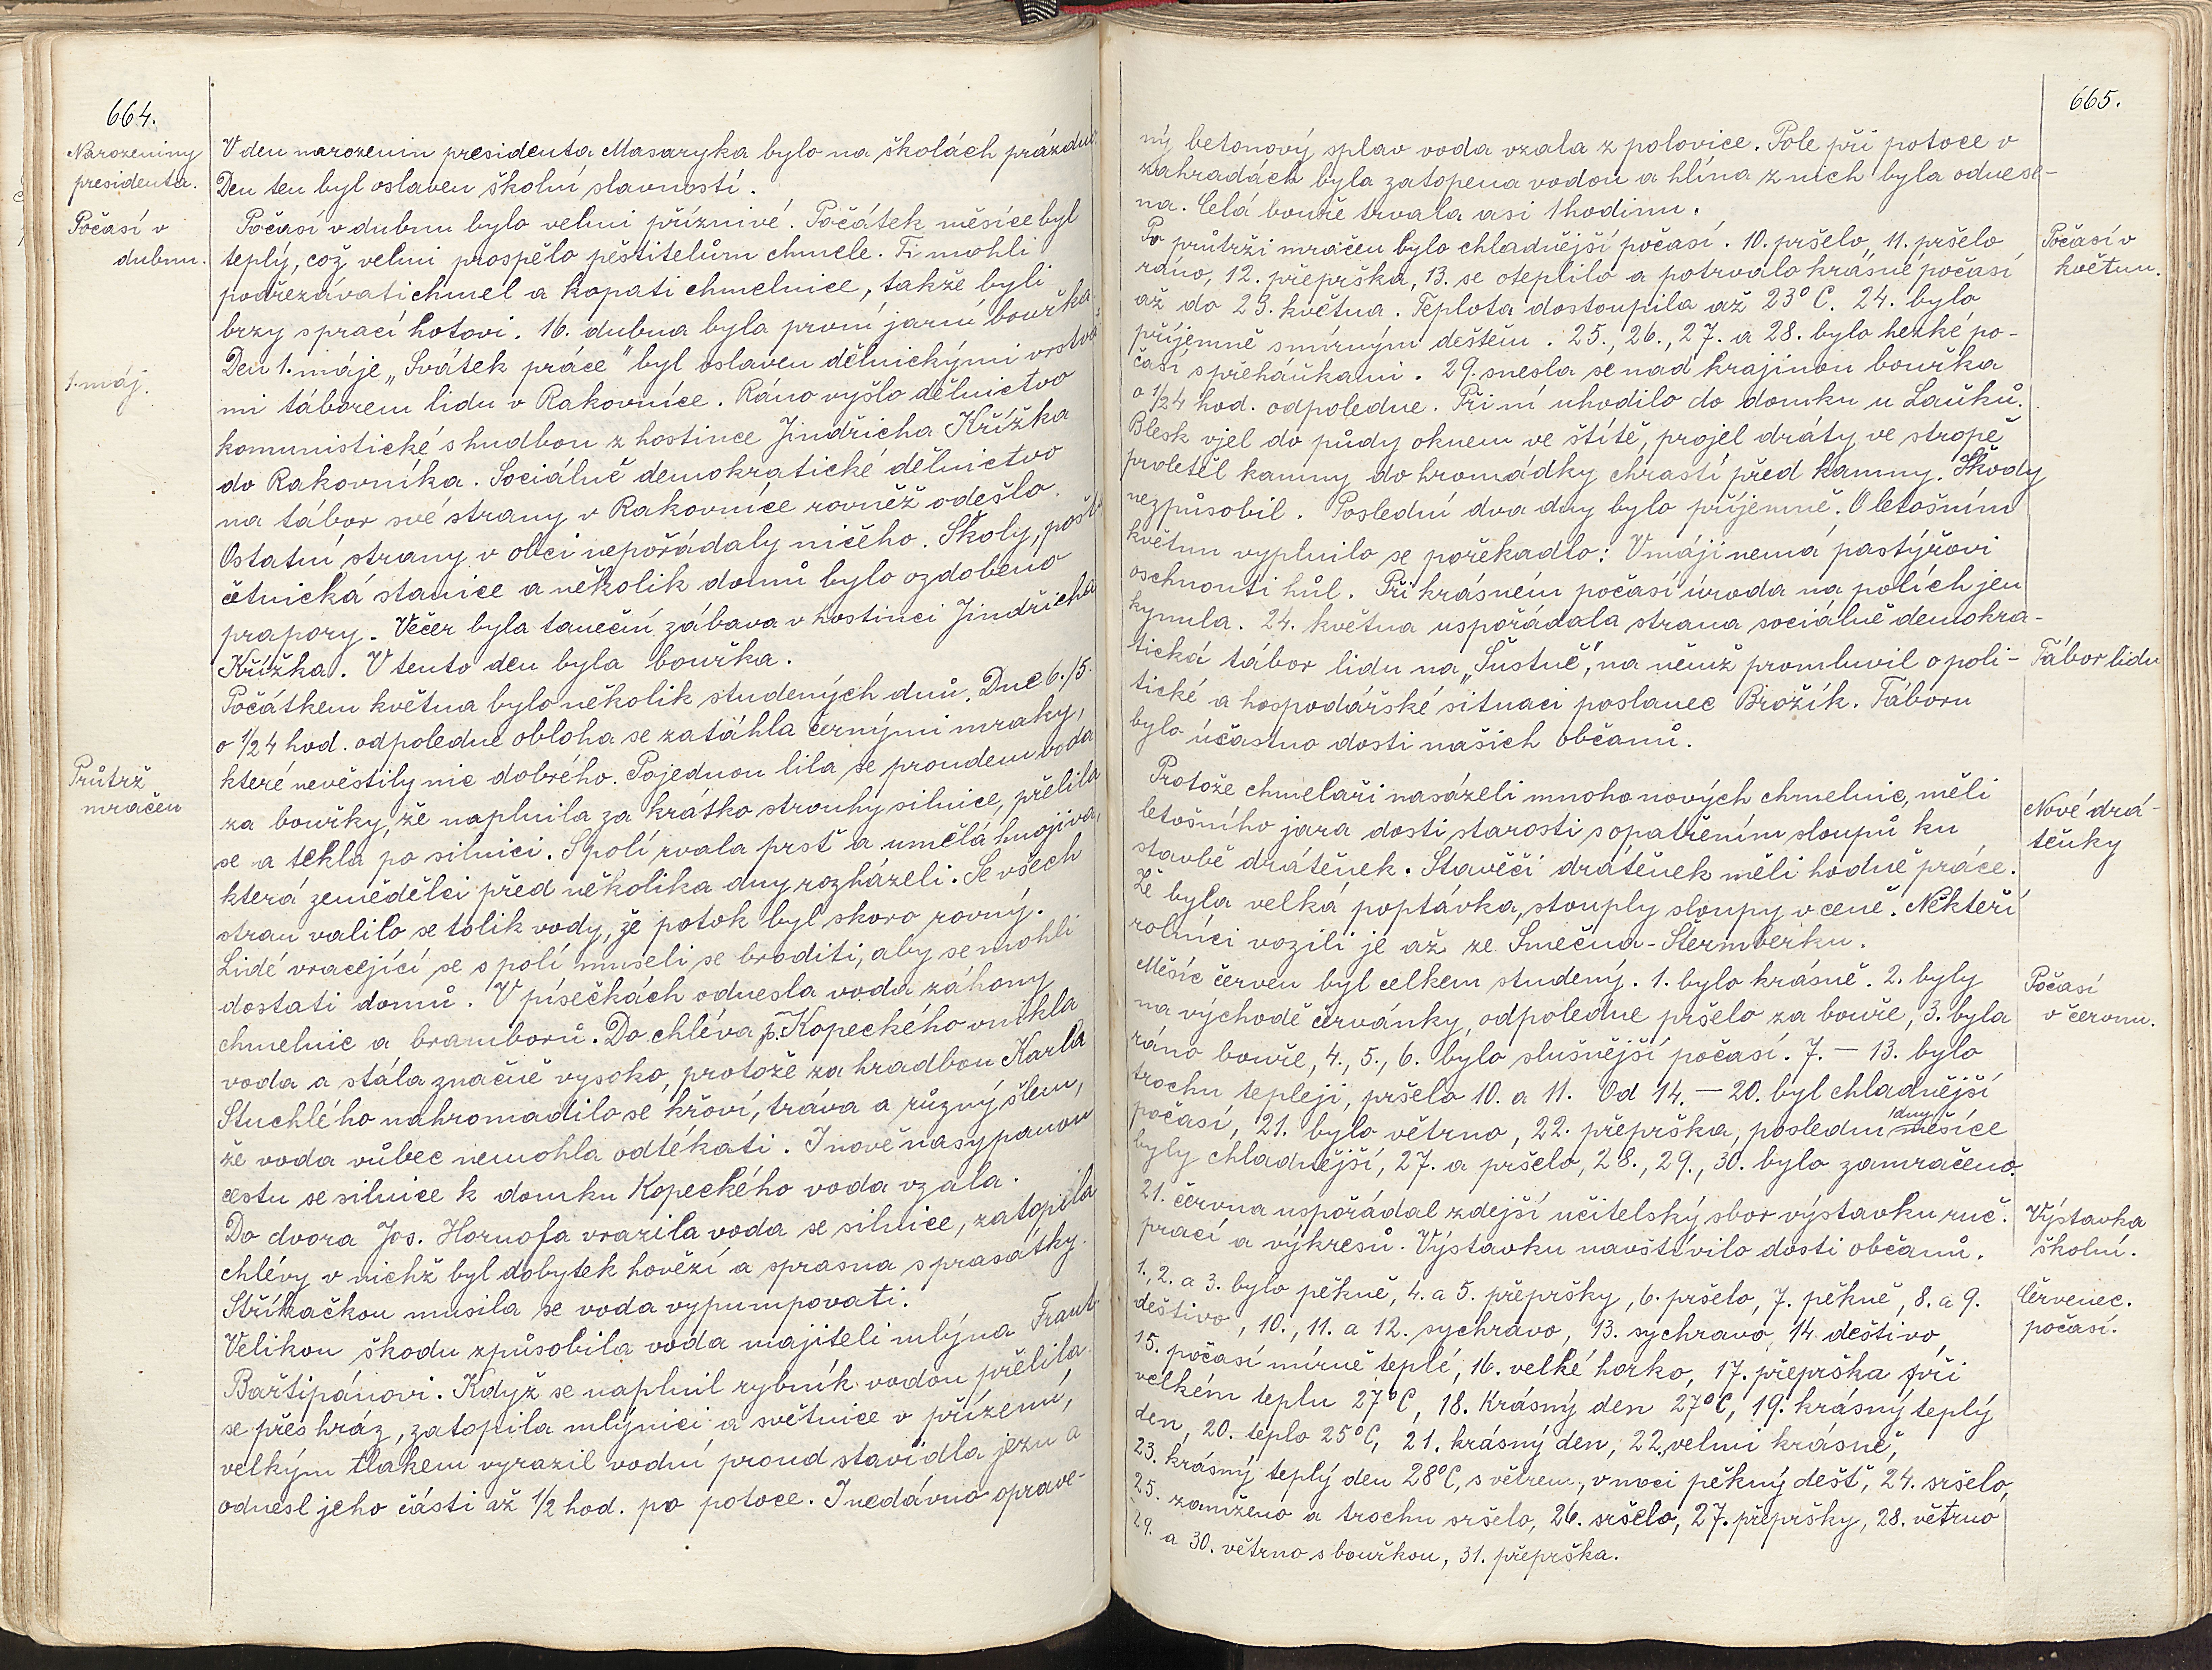 664.
Narozeniny
presidenta.
V den narozenin presidenta Masaryka bylo na školách prázdno.
Den ten byl oslaven školní slavností.
Počasí v
dubnu.
Počasí v dubnu bylo velmi příznivé. Počátek měsíce byl
teplý, což velmi prospělo pěstitelům chmele. Ti mohli
podřezávati chmel a kopati chmelnice, takže byli
brzy s prací hotovi. 16. dubna byla první jarní bouřka.
1. máj.
Den 1. máje „Svátek práce" byl oslaven dělnickými vrstva-
mi táborem lidu v Rakovníce. Ráno vyšlo dělnictvo
komunistické s hudbou z hostince Jindřicha Křížka
do Rakovníka. Sociálně demokratické dělnictvo
na tábor své strany v Rakovníce rovněž odešlo.
Ostatní strany v obci nepořádaly ničeho. Školy, pošta
četnická stanice a několik domů bylo ozdobeno
prapory. Večer byla taneční zábava v hostinci Jindřicha
Křížka. V tento den byla bouřka.
Počátkem května bylo několik studených dnů. Dne 6./5.
o 1/2 4 hod. odpoledne obloha se zatáhla černými mraky,
Průtrž
mračen
které nevěstily nic dobrého. Pojednou lila se proudem voda
za bouřky, že naplnila za krátko strouhy silnice, přelila
se a tekla po silnici. S polí rvala prsť a umělá hnojiva,
která zemědělci před několika dny rozházeli. Se všech
stran valilo se tolik vody, že potok byl skoro rovný.
Lidé vracející se s polí museli se broditi, aby se mohli
dostati domů. V písečkách odnesla voda záhony
chmelnic a bramborů. Do chléva p. Kopeckého vnikla
voda a stála značně vysoko, protože za hradbou Karla
Stuchlého nahromadilo se křoví, tráva a různý šlem,
že voda vůbec nemohla odtékati. I nově nasypanou
cestu se silnice k domku Kopeckého voda vzala.
Do dvora Jos. Hornofa vrazila voda se silnice, zatopila
chlévy v nichž byl dobytek hovězí a sprasna s prasátky.
Stříkačkou musila se voda vypumpovati.
Velikou škodu způsobila voda majiteli mlýna Frant.
Bařtipánovi. Když se naplnil rybník vodou přelila
se přes hráz, zatopila mlýnici a světnice v přízemí,
velkým tlakem vyrazil vodní proud stavidla jezu a
odnesl jeho části až 1/2 hod. po potoce. I nedávno oprave-
665.
ný betonový splav voda vzala z polovice. Pole při potoce v
zahradách byla zatopena vodou a hlína z nich byla odnese-
na. Celá bouře trvala asi 1 hodinu.
Počasí v
květnu.
Po průtrži mračen bylo chladnější počasí. 10. pršelo, 11. pršelo
ráno, 12. přeprška, 13. se oteplilo a potrvalo krásné počasí
až do 23. května. Teplota dostoupila až 23° C. 24. bylo
příjemně s mírným deštěm. 25., 26., 27. a 28. bylo hezké po-
časí s přeháňkami. 29. snesla se nad krajinou bouřka
o 1/2 4 hod. odpoledne. Při ní uhodilo do domku u Laňků.
Blesk vjel do půdy oknem ve štítě, projel dráty ve stropě
proletěl kamny do hromádky chrastí před kamny. Škody
nezpůsobil. Poslední dva dny bylo příjemně. O letošním
květnu vyplnilo se pořekadlo: V máji nemá pastýřovi
oschnouti hůl. Při krásném počasí úroda na polích jen
kynula. 24. května uspořádala strana sociálně demokra-
Tábor lidu
tická tábor lidu na „Šustně", na němž promluvil o poli-
tické a hospodářské situaci poslanec Brožík. Táboru
bylo účastno dosti našich občanů.
Nové drá-
těnky
Protože chmelaři nasázeli mnoho nových chmelnic, měli
letošního jara dosti starosti s opatřením sloupů ku
stavbě drátěnek. Stavěči drátěnek měli hodně práce.
Že byla velká poptávka, stouply sloupy v ceně. Někteří
rolníci vozili je až ze Smečna - Šternberku.
Počasí
v červnu.
Měsíc červen byl celkem studený. 1. bylo krásně. 2. byly
na východě červánky, odpoledne pršelo za bouře, 3. byla
ráno bouře, 4., 5., 6. bylo slušnější počasí. 7. — 13. bylo
trochu tepleji, pršelo 10. a 11. Od 14. — 20. byl chladnější
počasí, 21. bylo větrno, 22. přeprška, poslední dny měsíce
byly chladnější, 27. a pršelo, 28., 29., 30. bylo zamračeno.
Výstavka
školní.
21. června uspořádal zdejší učitelský sbor výstavku ruč.
prací a výkresů. Výstavku navštívilo dosti občanů.
Červenec.
počasí.
1., 2. a 3. bylo pěkně, 4. a 5. přepršky, 6. pršelo, 7. pěkně, 8. a 9.
deštivo, 10., 11. a 12. sychravo, 13. sychravo, 14. deštivo,
15. počasí mírně teplé, 16. velké horko, 17. přeprška při
velkém teplu 27°C, 18. krásný den 27°C, 19. krásný teplý
den, 20. teplo 25°C, 21. krásný den, 22. velmi krásně,
23. krásný teplý den 28°C, s větrem, v noci pěkný déšť, 24. sršelo,
25. zamženo a trochu sršelo, 26. sršelo, 27. přepršky, 28. větrno
29. a 30. větrno s bouřkou, 31. přeprška.